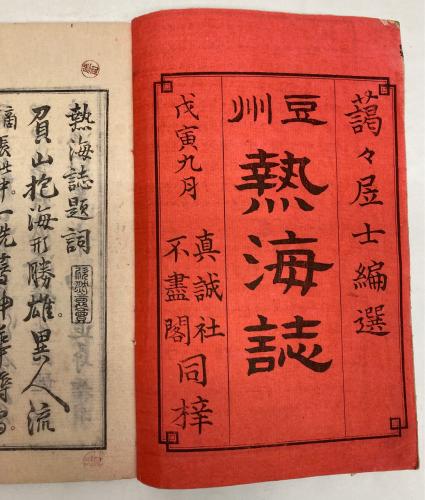 藹々居士編選
豆州
熱海誌
戊寅九月
真誠社
不盡閣
同梓
熱海誌題詞
負山抱海形勝雄異人流